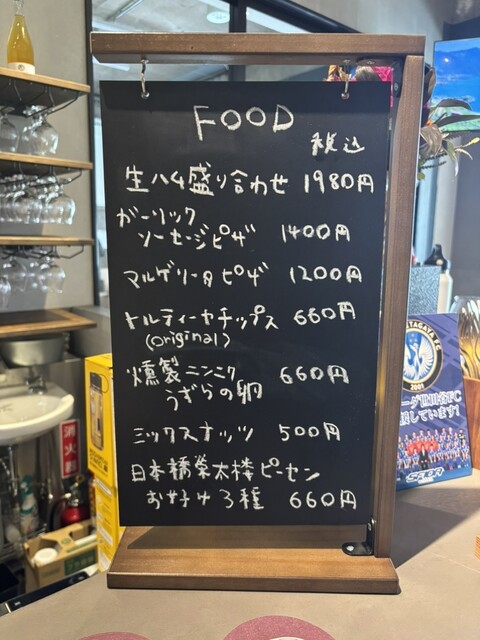 FOOD
税込
生ハム盛り合わせ 1980円
ガーリック
ソーセージピザ 1400円
マルゲリータピザ 1200円
トルティーヤチップス 660円
(original)
燻製ニンニク
うずらの卵 660円
ミックスナッツ 500円
日本橋榮太楼ピーセン
お好み3種 660円
消火器
TAGAYA FC
2001
ーダ世田谷FC
援しています!